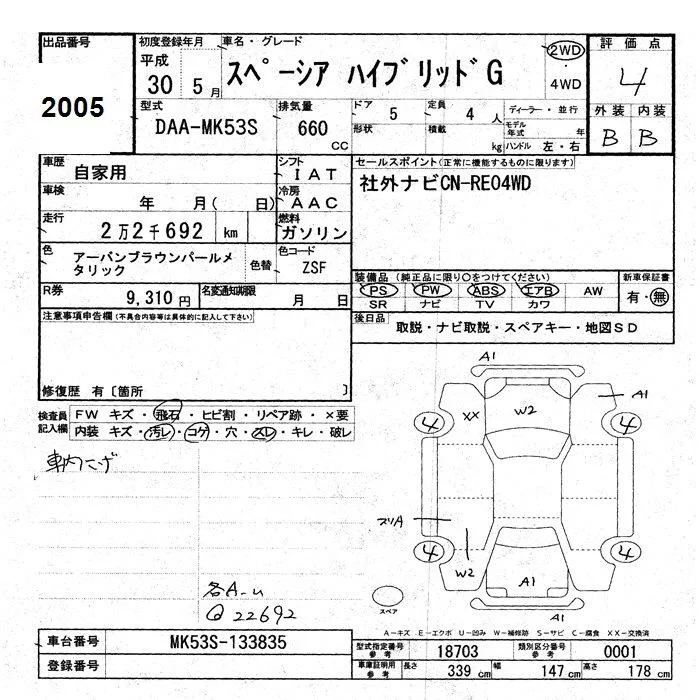 出品番号
2005
初度登録年月
平成
30 5 月
車名・グレード
スペーシア ハイブリッドG
2WD
・
4WD
評価点
4
型式
DAA-MK53S
排気量
660 CC
ドア 5
形状
定員 4 人
積載 kg
ディーラー・並行
モデル年式 年
ハンドル 左・右
外装 内装
B B
車歴
自家用
シフト
IAT
車検
年 月( 日)
冷房
AAC
走行
2万2千692 km
燃料
ガソリン
色
アーバンブラウンパールメ
タリック
色替
色コード
ZSF
R券
9,310 円
名変通知期限
月 日
セールスポイント(正常に機能するものに限ります)
社外ナビCN-RE04WD
装備品 (純正品に限り○をつけてください)
PS PW ABS エアB AW
SR ナビ TV カワ
新車保証書
有・無
後日品
取説・ナビ取説・スペアキー・地図SD
注意事項申告欄(不具合内容等は具体的に記入して下さい)
修復歴 有〔箇所 〕
検査員
記入欄
FW キズ・飛石・ヒビ割・リペア跡・×要
内装 キズ・汚レ・コゲ・穴・スレ・キレ・破レ
車内コゲ
各A-u
@22692
A1
A1
XX
W2
4
4
ズリA
4
4
W2
A1
A1
スペア
A-キズ E-エクボ U-凹み W-補修跡 S-サビ C-腐食 XX-交換済
車台番号
MK53S-133835
登録番号
型式指定番号
参考
18703
類別区分番号
参考
0001
車庫証明用
参考
長さ 339 cm 幅 147 cm 高さ 178 cm